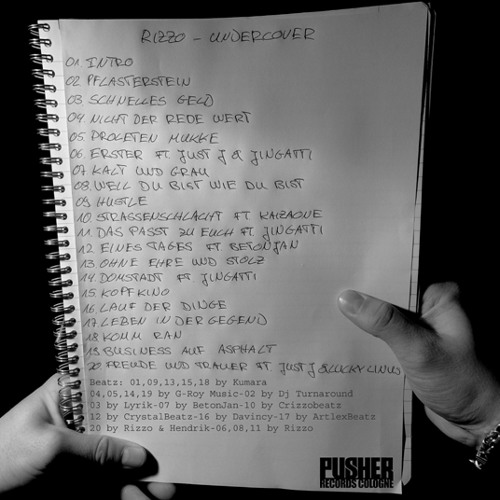 RIZZO - UNDERCOVER
01 INTRO
02 PFLASTERSTEIN
03 SCHNELLES GELD
04. NICHT DER REDE WERT
05. PROLETEN MUKKE
06. ERSTER FT JUST J & JINGATTI
07. KALT UND GRAU
08. WEIL DU BIST WIE DU BIST
09. HUSTLE
10. STRASSENSCHLACHT FT KAIZAQUE
11. DAS PASST ZU EUCH FT. JINGATTI
12. EINES TAGES FT. BETONJAN
13. OHNE EHRE UND STOLZ
14. DOMSTADT FT JINGATTI
15. KOPFKINO
16. LAUF DER DINGE
17. LEBEN IN DER GEGEND
18. KOMM RAN
19. BUSINESS AUF ASPHALT
20 FREUDE UND TRAUER FT. JUST J & LUCKY LINU
Beatz: 01,09,13,15,18 by Kumara
04,05,14,19 by G-Roy Music-02 by Dj Turnaround
03 by Lyrik-07 by BetonJan-10 by Crizzobeatz
12 by CrystalBeatz-16 by Davincy-17 by ArtlexBeatz
20 by Rizzo & Hendrik-06,08,11 by Rizzo
PUSHER
RECORDS COLOGNE